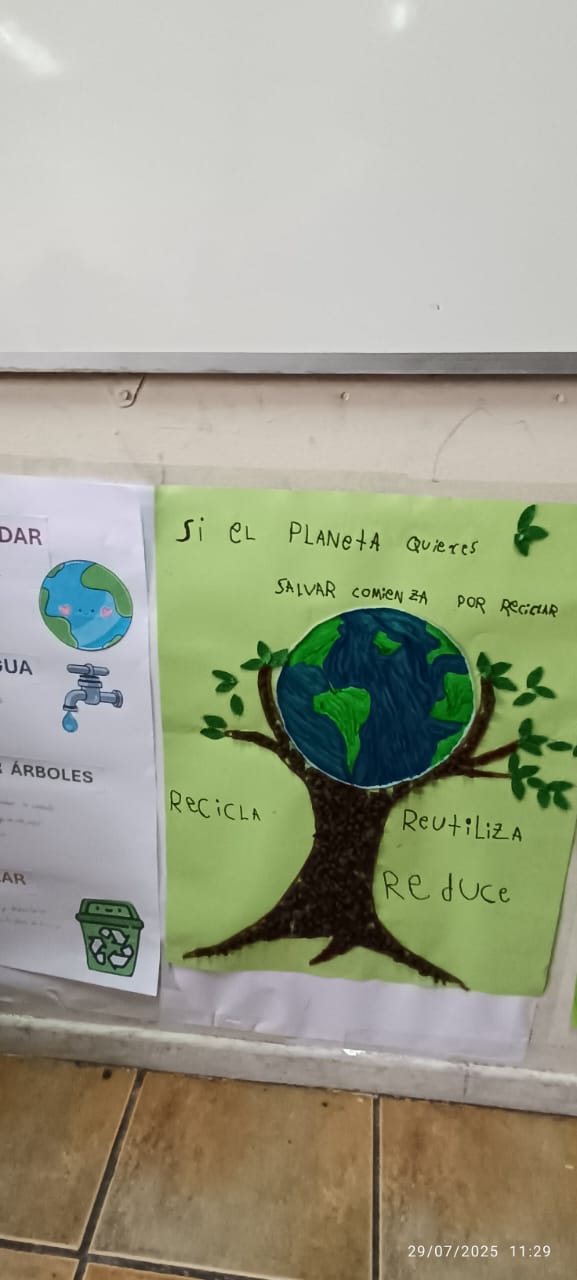 DAR
GUA
ÁRBOLES
AR
Si eL PLANetA Quieres
SALVAR comienZA POR Reciclar
RecicLA
ReutiLiZA
Reduce
29/07/2025 11:29